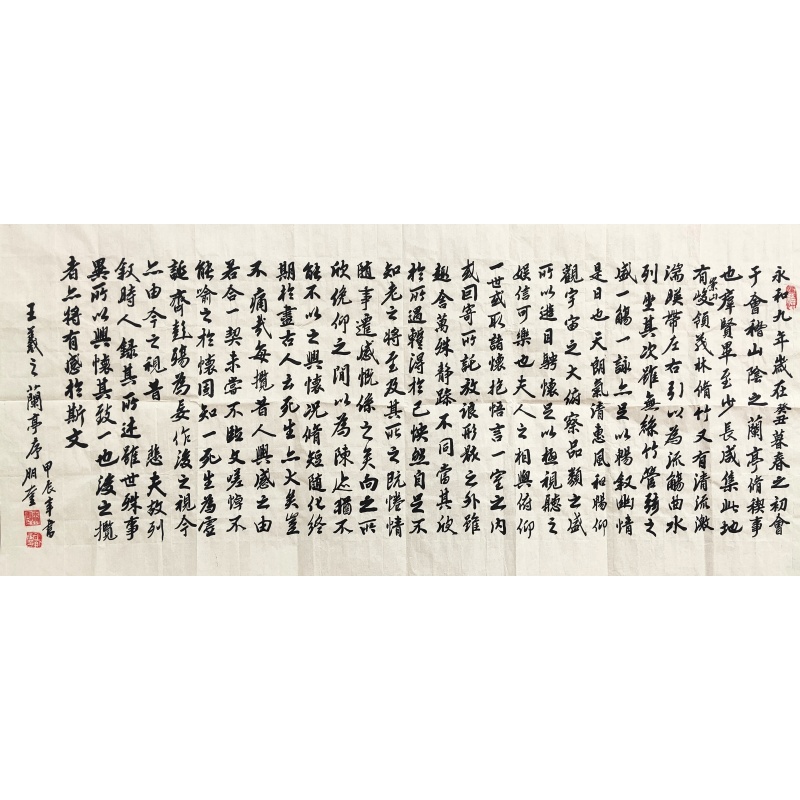 永和九年歲在癸丑暮春之初會
于會稽山陰之蘭亭脩禊事
也羣賢畢至少長咸集此地
有崇山峻領茂林脩竹又有清流激
湍暎帶左右引以為流觴曲水
列坐其次雖無絲竹管弦之
盛一觴一詠亦足以暢敘幽情
是日也天朗氣清惠風和暢仰
觀宇宙之大俯察品類之盛
所以遊目騁懷足以極視聽之
娛信可樂也夫人之相與俯仰
一世或取諸懷抱悟言一室之內
或因寄所託放浪形骸之外雖
趣舍萬殊靜躁不同當其欣
於所遇暫得於己怏然自足不
知老之將至及其所之既惓情
隨事遷感慨係之矣向之所
欣俛仰之間以為陳迹猶不
能不以之興懷況脩短隨化終
期於盡古人云死生亦大矣豈
不痛哉每攬昔人興感之由
若合一契未嘗不臨文嗟悼不
能喻之於懷固知一死生為虛
誕齊彭殤為妄作後之視今
亦由今之視昔 悲夫故列
敘時人錄其所述雖世殊事
異所以興懷其致一也後之攬
者亦將有感於斯文
王羲之蘭亭序
甲辰年書